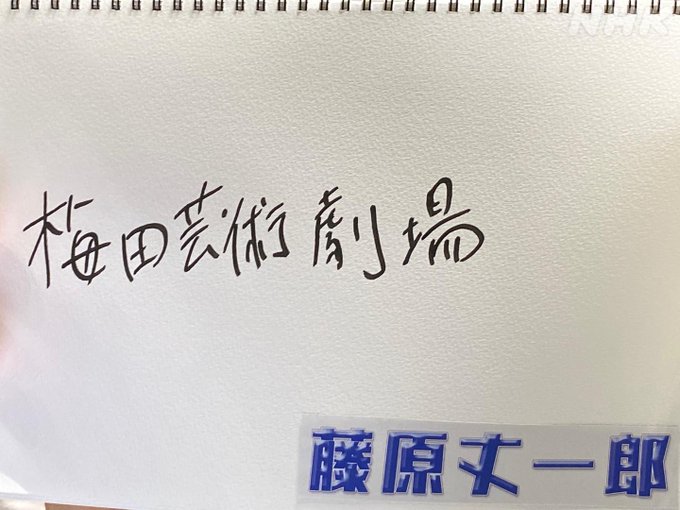 NHK
梅田芸術劇場
藤原丈一郎